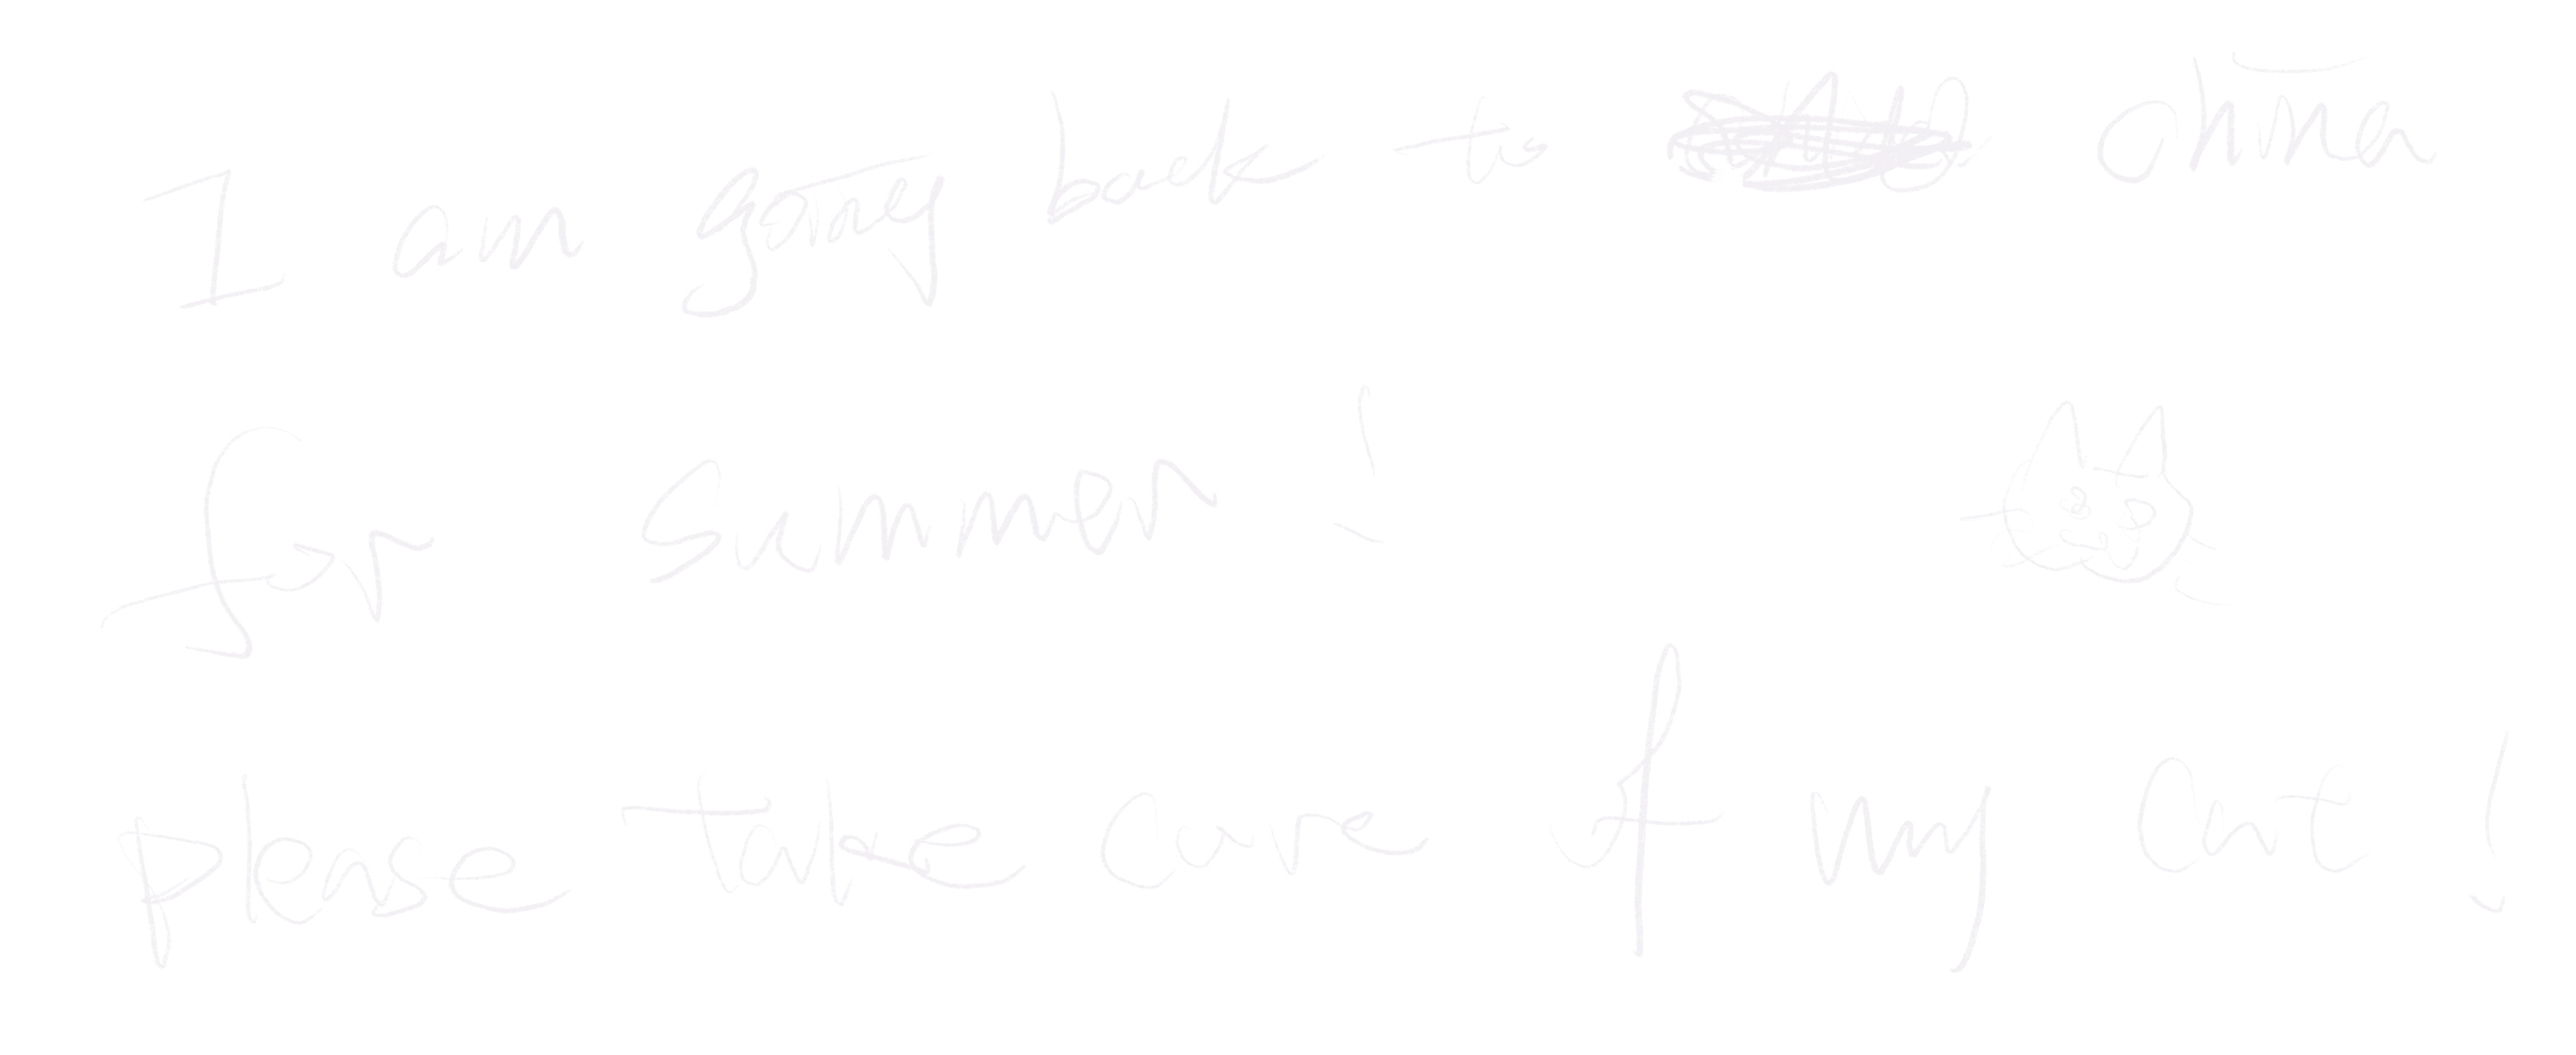 I am going back to china
for summer!
please take care of my cat!